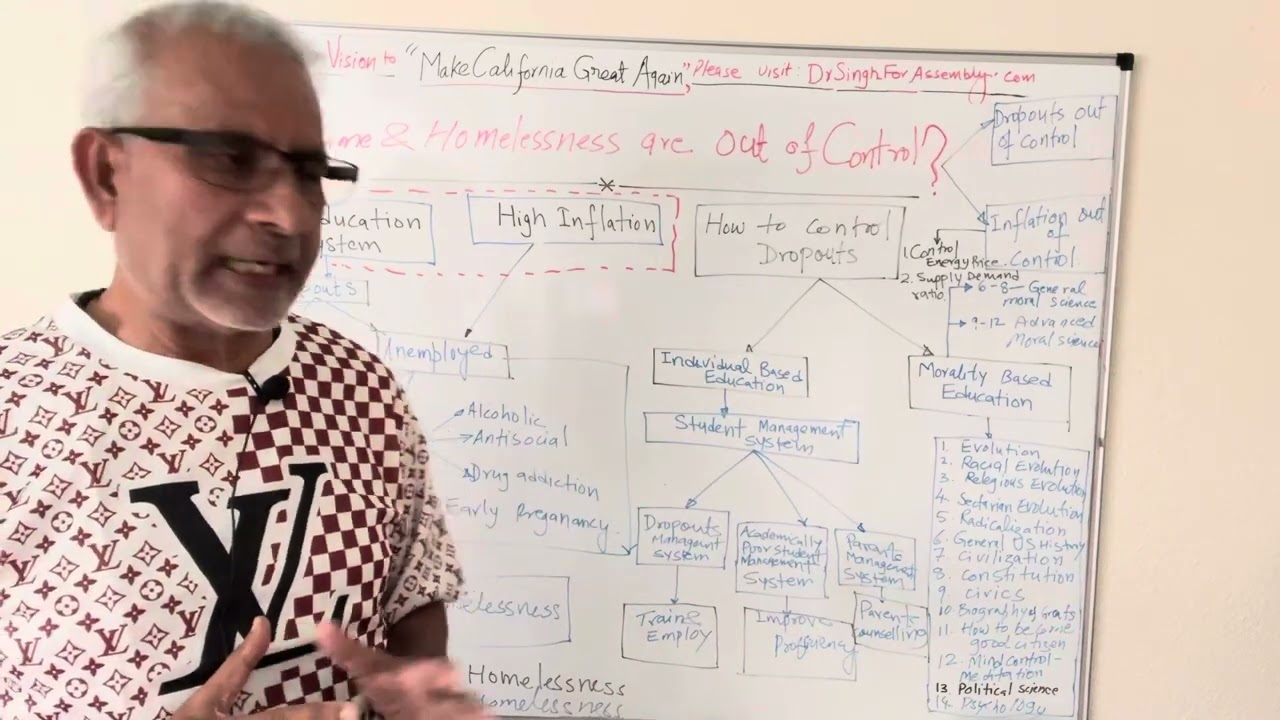 Vision to "Make California Great Again", Please visit: DrSinghForAssembly.com
& Homelessness are out of Control?
Dropouts out
of control
Inflation out
of
Control.
1. Control
Energy Price
2. Supply Demand
ratio
6-8 — General
moral science
9-12 Advanced
Moral science
High Inflation
How to control
Dropouts
Alcoholic
Antisocial
Drug addiction
Early Preganancy
Individual Based
Education
Student Management
System
Dropouts
Managment
System
Train &
Employ
Academically
Poor Student
Management
System
Improve
Parents
Management
System
Parents
Counselling
Morality Based
Education
1. Evolution
2. Racial Evolution
3. Relegious Evolution
4. Sectarian Evolution
5. Radicalization
6. General US History
7. Civilization
8. Constitution
9. Civics
10. Biography of Greats
11. How to become
good citizen
12. Mind control-
meditation
13 Political science
14.
Homelessness
Homelessness
LV